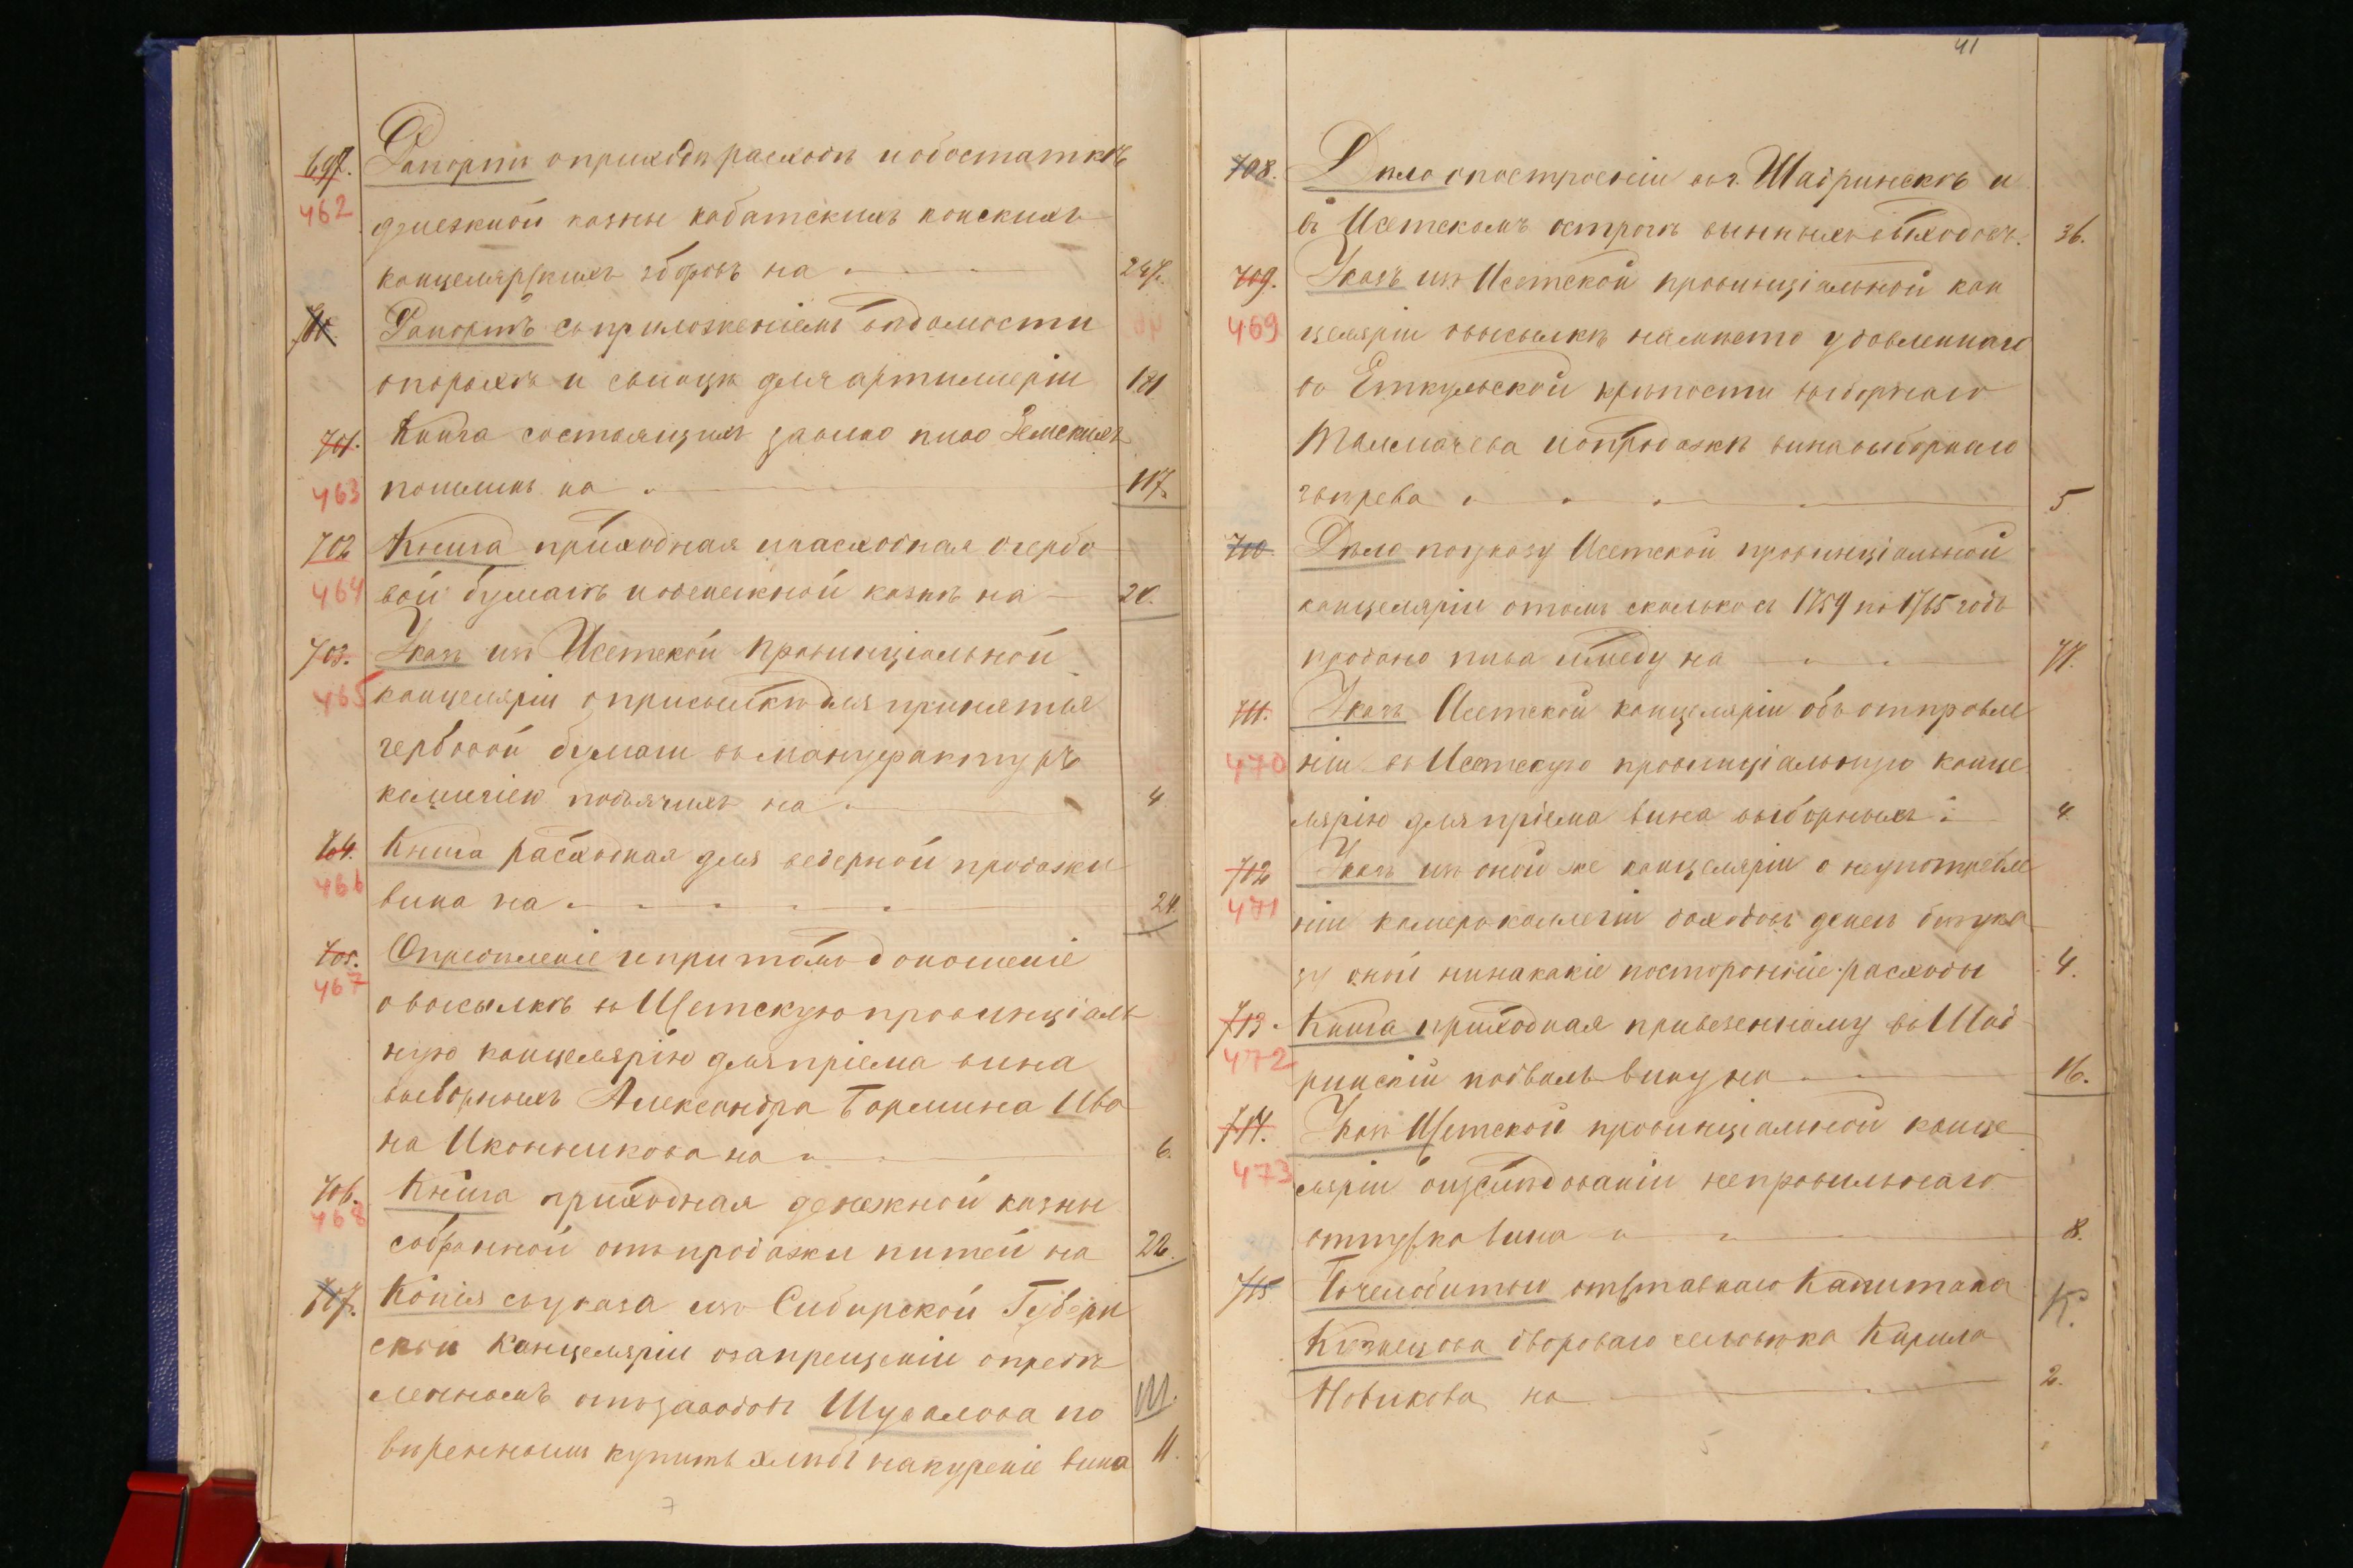 697. Рапорти о приходѣ расходѣ и обостаткѣ
462 денежной казны кабатскихъ конскихъ
канцелярскихъ зборовъ на 247.
Рапортъ съ приложеніемъ вѣдомости
о порохѣ и свинцѣ для артиллеріи 181
701. Книга состоящих за вино пиво Земскихъ
463 пошлинъ на 117.
702 Книга приходная и расходная о гербо
464 вой бумагѣ и о денежной казнѣ на 20.
703. Указъ изъ Исетской провинціальной
465 канцеляріи о присылкѣ для принятія
гербовой бумаги въ мануфактуръ
колегію подъячихъ на 4
704. Книга расходная для ведерной продажи
466 вина на 24.
705. Опредѣленіе и при томъ доношеніе
467 о высылкѣ въ Исетскую провинціаль
ную канцелярію для пріема вина
выборныхъ Александра Бормина Ива
на Иконникова на 6.
706. Книга приходная денежной казны
468 собранной отъ продажи питей на 22.
707. Копія съ указа изъ Сибирской Губерн
ской Канцеляріи о запрещеніи опредѣ
леннымъ отъ заводовъ Шувалова по Ш.
вѣреннымъ купить хлѣбъ на куреніе вина 11.
7
41
708. Дѣло о построеніи въ г. Шадринскѣ и
въ Исетскомъ острогѣ винныхъ выходовъ. 36.
709. Указъ изъ Исетской провинціальной кан
469 целяріи о высылкѣ на мѣсто
во Еткульской крѣпости выборнаго
Толмачева и о продажѣ вина выборнаго
5
710 Дѣло по указу Исетской провинціальной
канцеляріи о томъ сколько съ 1759 по 1765 годъ
продано пива и меду на
711. Указъ Исетской канцеляріи объ отправле
470 ніи въ Исетскую провинціальную канце
лярію для пріема вина выборныхъ 4
712 Указъ изъ оной же канцеляріи о неупотребле
471 ніи камеръ коллегіи доходовъ денегъ без ука
зу оной ни на какіе посторонніе расходы 4.
713. Книга приходная привезенному въ Шад
472 ринскій подвалъ вину на 16.
714. Указъ Исетской провинціальной канце
473 ляріи о изслѣдованіи неправильнаго
отпуска вина 8.
715 Почелобитью отставнаго Капитана К.
Кузнецова двороваго человѣка Кирила
Новикова на 2.